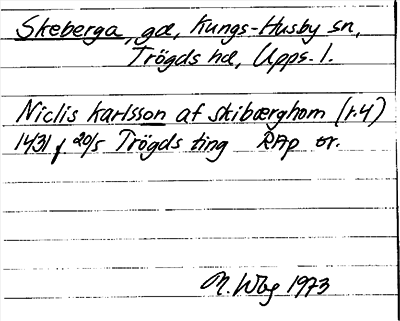 Skeberga, gd, Kungs-Husby sn,
Trögds hd, Upps. l.
Niclis Karlsson af skibærghom (r.4)
1431 20/5 Trögds ting RAp or.
M. Wbg 1973